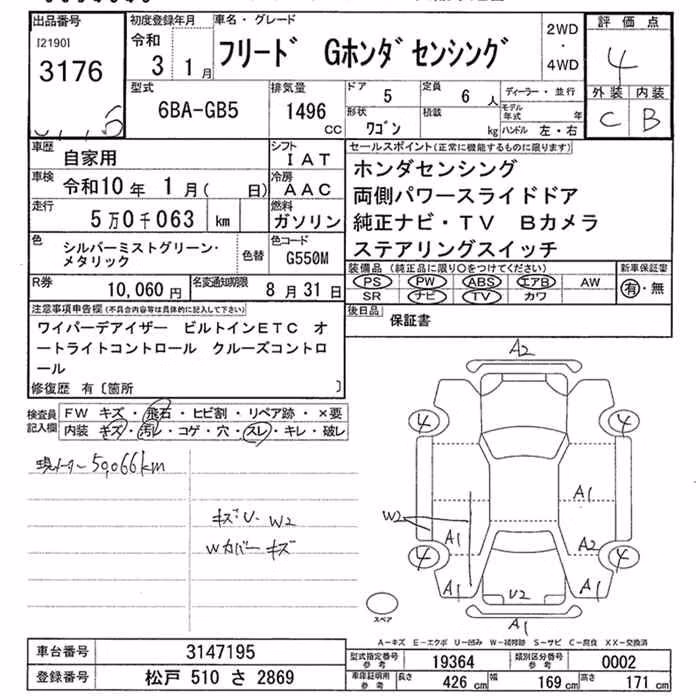 出品番号
[2190]
3176
初度登録年月
令和
3 1月
車名・グレード
フリード Gホンダセンシング
2WD
・
4WD
評価点
4
外装 内装
C B
型式
6BA-GB5
排気量
1496
CC
ドア
5
定員
6人
ディーラー・並行
形状
ワゴン
積載
kg
モデル年式 年
ハンドル 左・右
車歴
自家用
シフト
IAT
車検
令和10年 1月( 日)
冷房
AAC
走行
5万0千063 km
燃料
ガソリン
色
シルバーミストグリーン・
メタリック
色替
色コード
G550M
R券
10,060円
名変通知期限
8月31日
セールスポイント(正常に機能するものに限ります)
ホンダセンシング
両側パワースライドドア
純正ナビ・TV Bカメラ
ステアリングスイッチ
装備品 (純正品に限り○をつけてください)
PS PW ABS エアB AW
SR ナビ TV カワ
新車保証書
有・無
後日品
保証書
注意事項申告欄(不具合内容等は具体的に記入して下さい)
ワイパーデアイザー ビルトインETC オ
ートライトコントロール クルーズコントロ
ール
修復歴 有〔箇所 〕
検査員
記入欄
FW キズ・飛石・ヒビ割・リペア跡・×要
内装 キズ・汚レ・コゲ・穴・スレ・キレ・破レ
現メーター 50,066km
キズU・W2
Wカバー キズ
A2
4 4
A1
W2
A1
A2
4 4
A1
U2
A1
A1
スペア
A-キズ E-エクボ U-凹み W-補修跡 S-サビ C-腐食 XX-交換済
車台番号
3147195
登録番号
松戸 510 さ 2869
型式指定番号
参考
19364
類別区分番号
参考
0002
車庫証明用
参考
長さ
426cm
幅
169cm
高さ
171cm